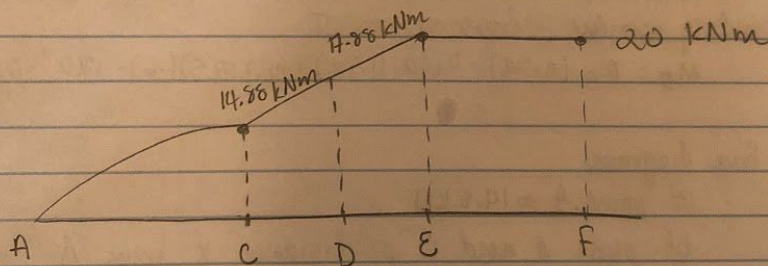 17.88 kNm
20 KNm
14.88 kNm
A C D E F